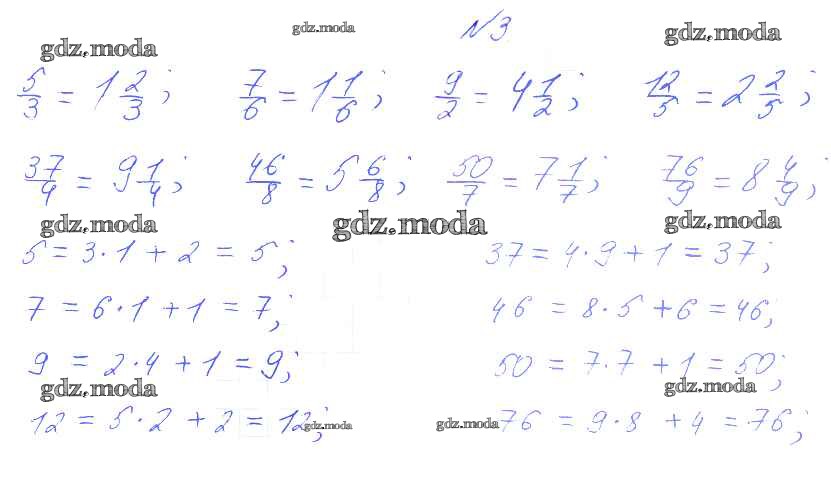 gdz.moda gdz.moda №3 gdz.moda
5/3 = 1 2/3; 7/6 = 1 1/6; 9/2 = 4 1/2; 12/5 = 2 2/5;
37/4 = 9 1/4; 46/8 = 5 6/8; 50/7 = 7 1/7; 76/9 = 8 4/9;
gdz.moda gdz.moda gdz.moda
5 = 3·1 + 2 = 5; 37 = 4·9 + 1 = 37;
7 = 6·1 + 1 = 7; 46 = 8·5 + 6 = 46;
9 = 2·4 + 1 = 9; 50 = 7·7 + 1 = 50;
gdz.moda gdz.moda
12 = 5·2 + 2 = 12; gdz.moda gdz.moda 76 = 9·8 + 4 = 76;